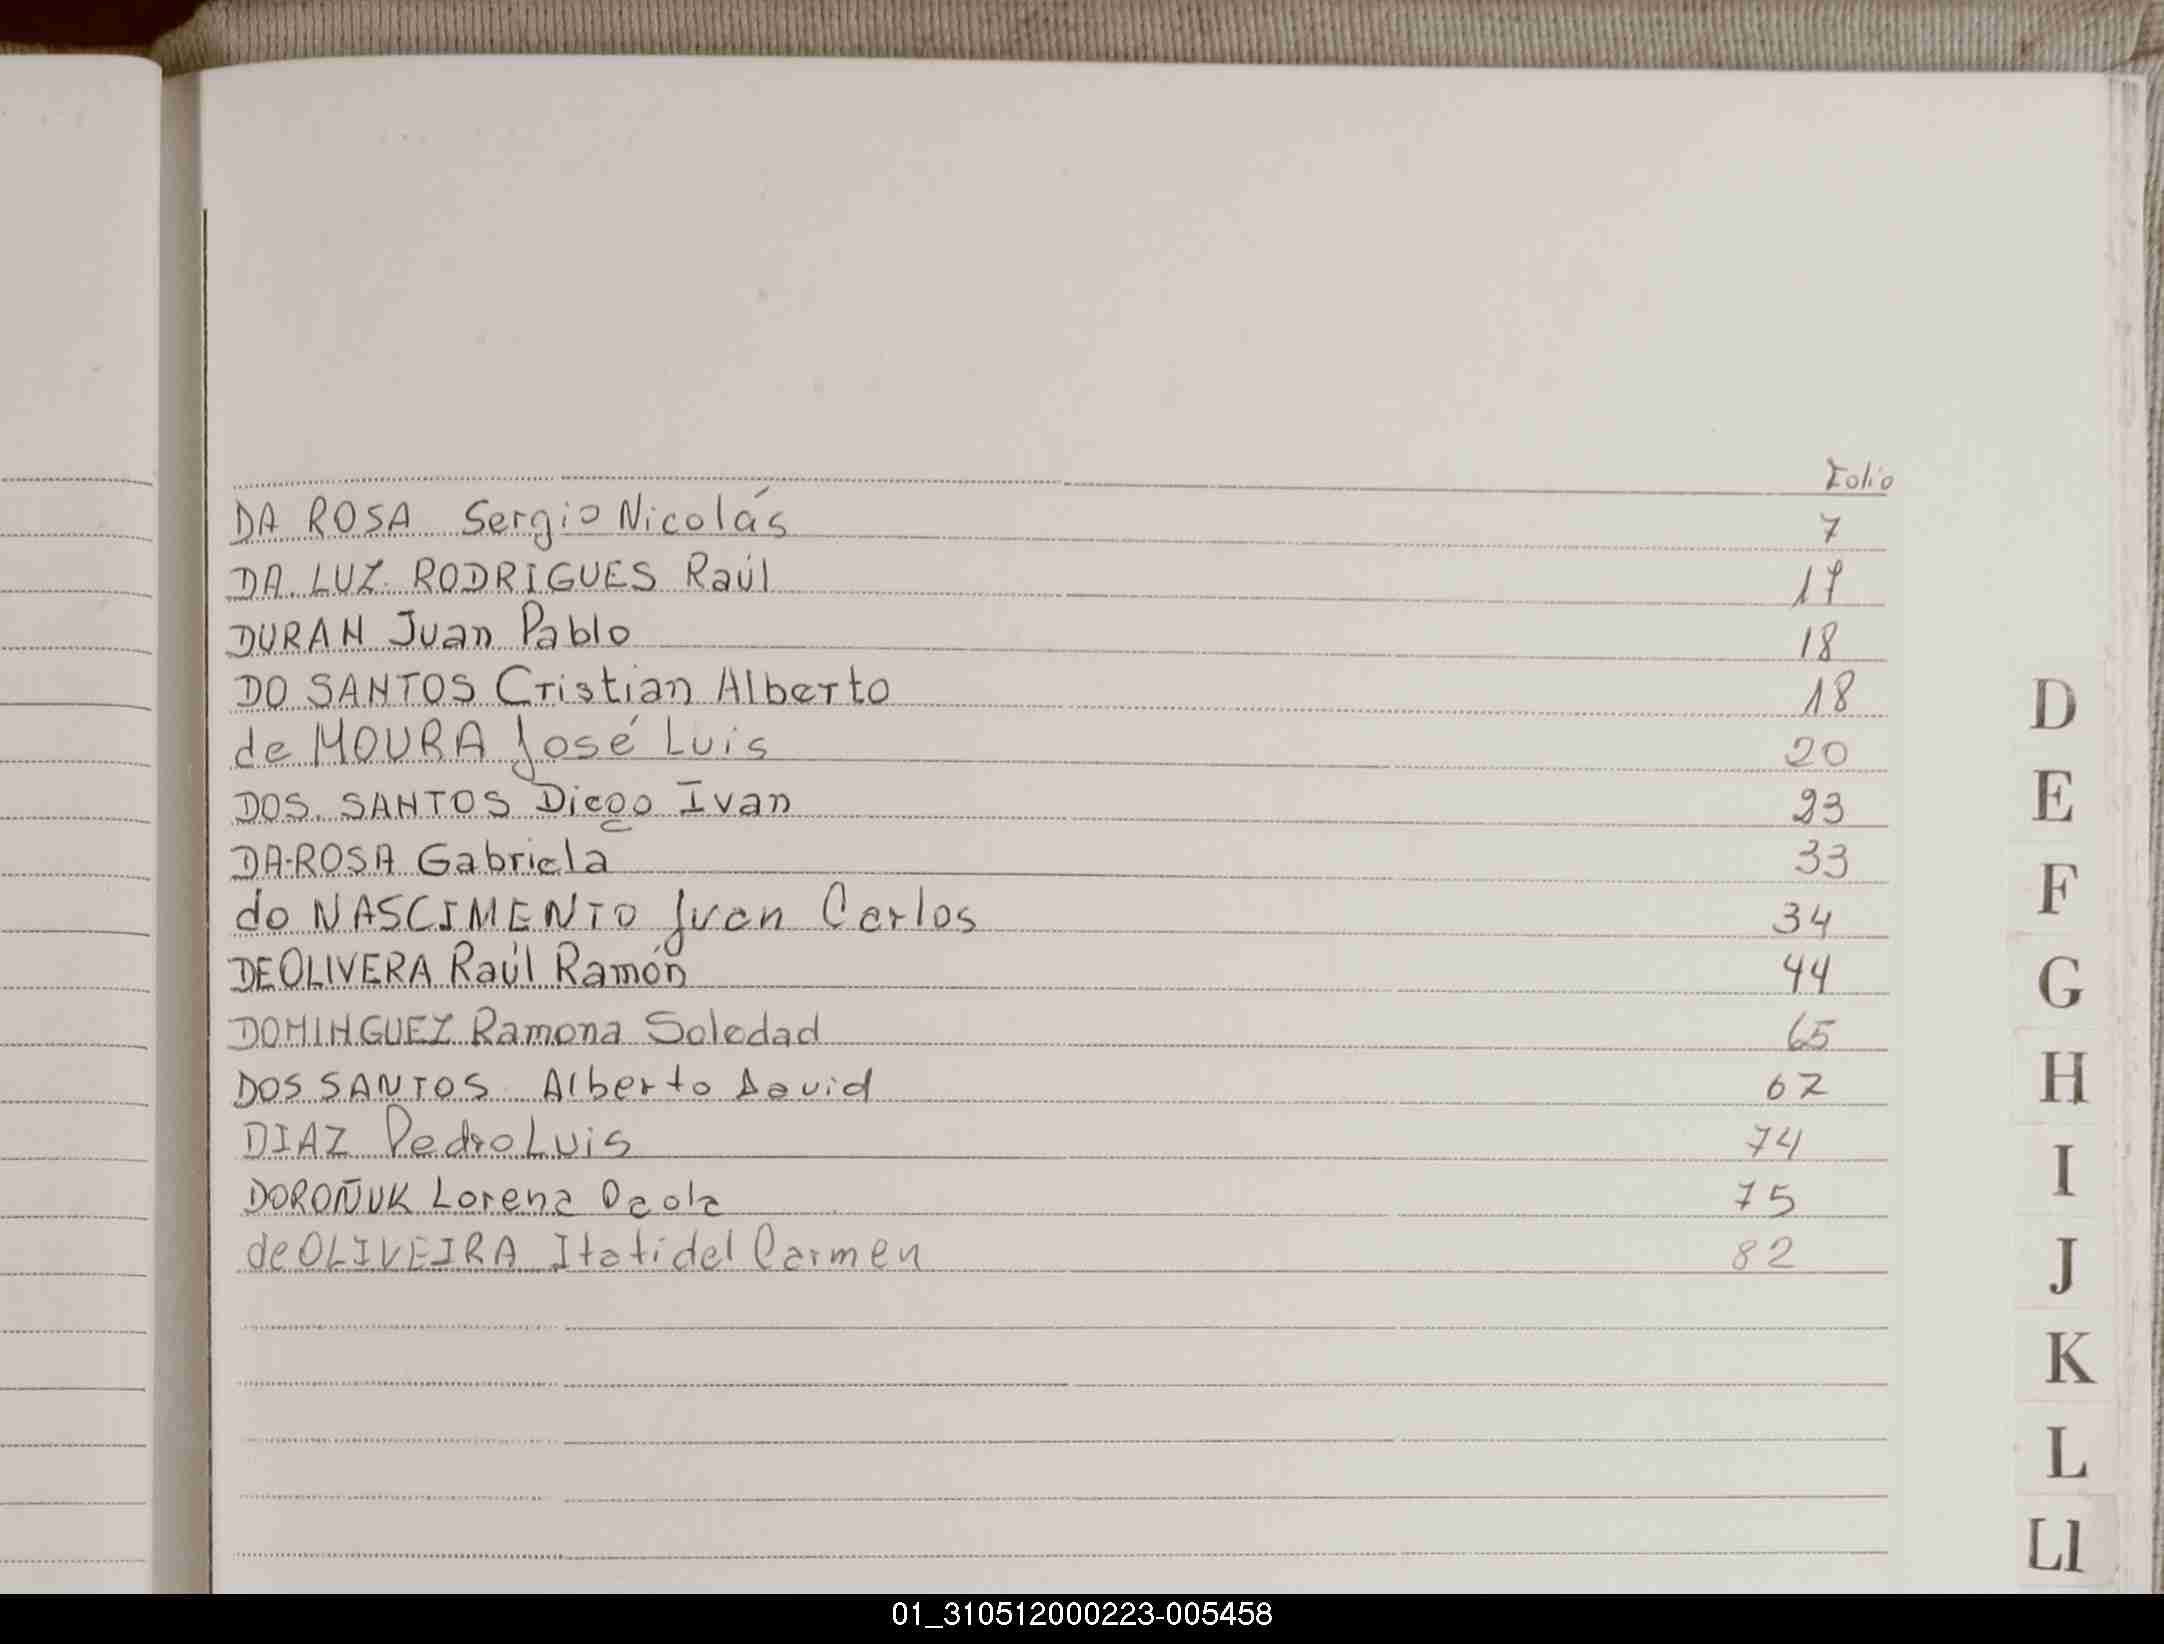 Folio
DA ROSA Sergio Nicolás 7
DA LUZ RODRIGUES Raúl 17
DURAN Juan Pablo 18
DO SANTOS Cristian Alberto 18
de MOURA José Luis 20
DOS SANTOS Diego Ivan 23
DA-ROSA Gabriela 33
do NASCIMENTO Juan Carlos 34
DEOLIVERA Raúl Ramón 44
DOMINGUEZ Ramona Soledad 65
DOS SANTOS Alberto David 67
DIAZ Pedro Luis 74
DOROÑUK Lorena Paola 75
de OLIVEIRA Itati del Carmen 82
D
E
F
G
H
I
J
K
L
Ll
01_310512000223-005458